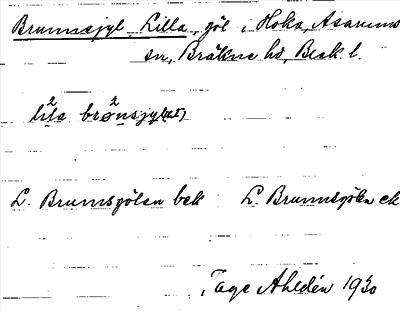 Brunnsgyl, Lilla, göl i Hoka, Asarums
sn, Bräkne hd, Blek. l.
lìla brønsjy(lt)
L. Brunnsgölen bek L. Brunnsgölen ek
Tage Ahldén 1930